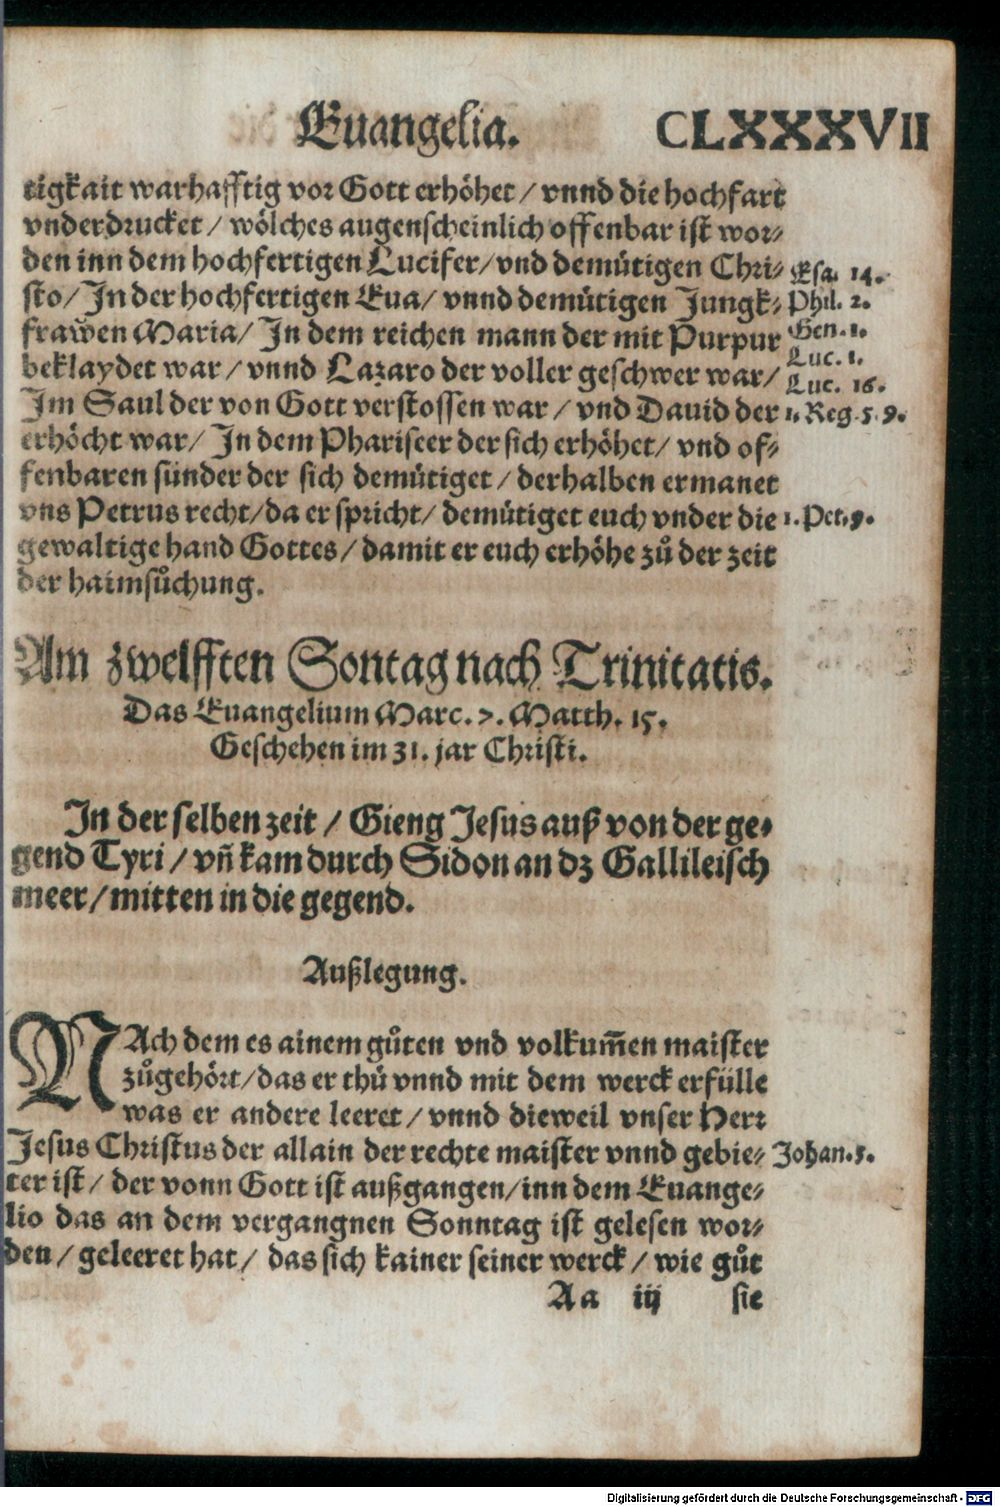 Euangelia. CLXXXVII
tigkait warhafftig vor Gott erhöhet / vnnd die hochfart
vnderdrucket / wölches augenscheinlich offenbar ist wor-
den inn dem hochfertigen Lucifer/vnd demütigen Chri-
sto/ In der hochfertigen Eua/ vnnd demütigen Jungk-
frawen Maria/ In dem reichen mann der mit Purpur
beklaydet war / vnnd Lazaro der voller geschwer war/
Im Saul der von Gott verstossen war / vnd Dauid der
erhöcht war/ In dem Phariseer der sich erhöhet/ vnd of-
fenbaren sünder der sich demütiget / derhalben ermanet
vns Petrus recht/da er spricht/ demütiget euch vnder die
gewaltige hand Gottes / damit er euch erhöhe zů der zeit
der haimsůchung.
Esa. 14.
Phil. 2.
Gen. 1.
Luc. 1.
Luc. 16.
1. Reg. 5. 9.
1. Pet. 5.
Am zwelfften Sontag nach Trinitatis.
Das Euangelium Marc. 7. Matth. 15.
Geschehen im 31. jar Christi.
In der selben zeit / Gieng Jesus auß von der ge-
gend Tyri / vñ kam durch Sidon an dz Gallileisch
meer/mitten in die gegend.
Außlegung.
NAch dem es ainem gůten vnd volkum̄en maister
zůgehört/das er thů vnnd mit dem werck erfülle
was er andere leeret / vnnd dieweil vnser Herr
Jesus Christus der allain der rechte maister vnnd gebie-
ter ist / der vonn Gott ist außgangen/inn dem Euange-
lio das an dem vergangnen Sonntag ist gelesen wor-
den / geleeret hat / das sich kainer seiner werck / wie gůt
Johan. 5.
Aa iij sie
Digitalisierung gefördert durch die Deutsche Forschungsgemeinschaft - DFG